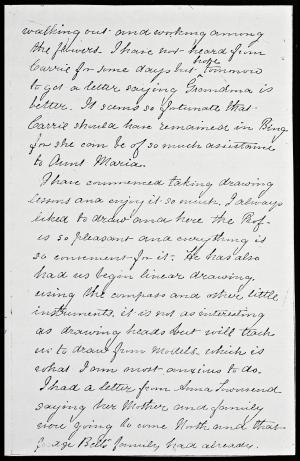 walking out and working among
the flowers. I have not heard from
Carrie for some days but hope tomorrow
to get a letter saying Grandma is
better. It seems so fortunate that
Carrie should have remained in Bing
for she can be of so much assistance
to Aunt Maria.
I have commenced taking drawing
lessons and enjoy it so much. I always
liked to draw and here the Prof-
is so pleasant and everything is
so convenient for it. He has also
had us begin linear drawing,
using the compass and other little
instruments, it is not as interesting
as drawing heads but will teach
us to draw from Models which is
what I am most anxious to do.
I had a letter from Anna Townsend
saying her Mother and family
were going to come North and that
Judge Betts family had already.